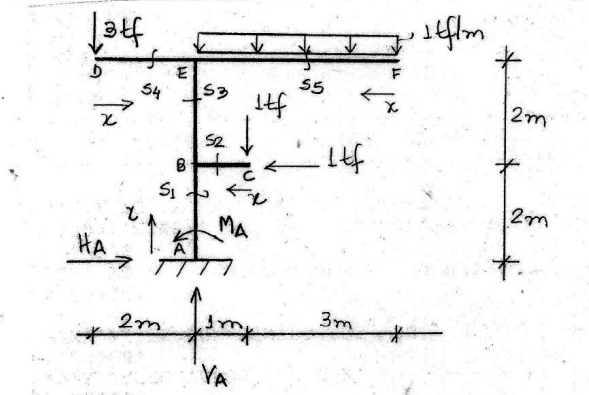 3tf
1tf/m
D
E
F
S4
S3
S5
x
x
1tf
2m
S2
B
C
1tf
S1
x
x
MA
2m
HA
A
2m
1m
3m
VA